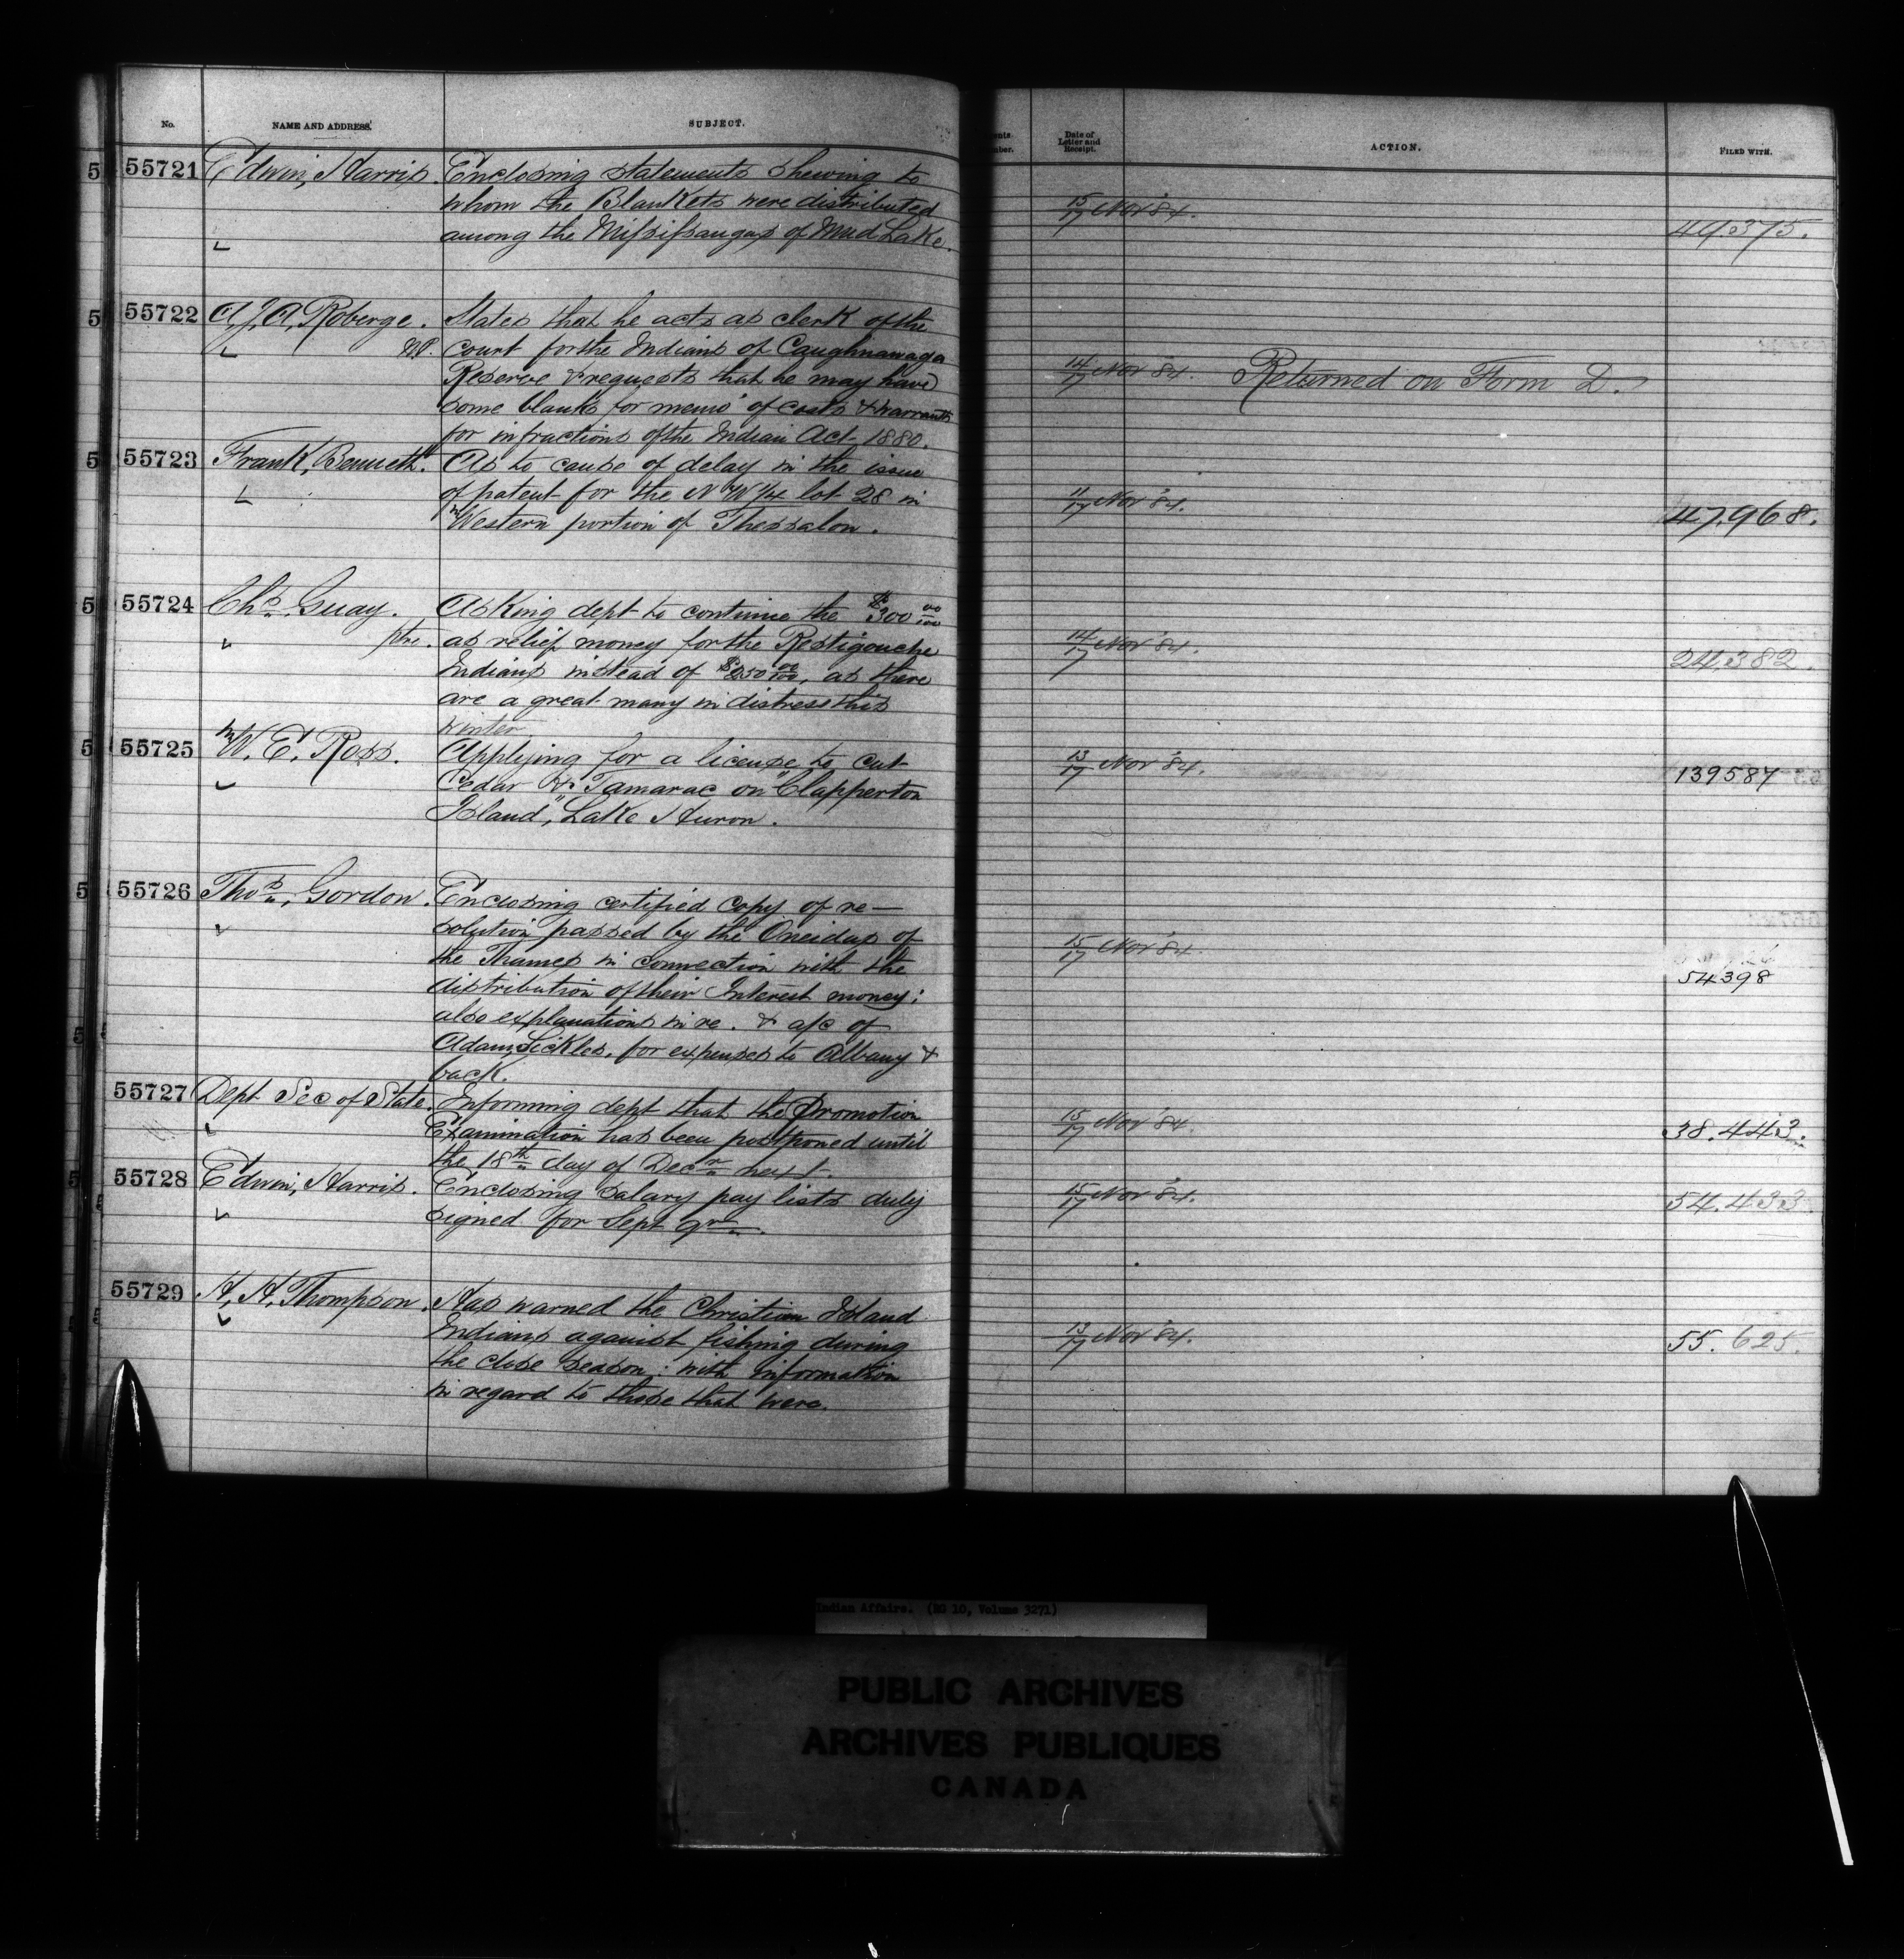 No. NAME AND ADDRESS. SUBJECT.
55721 Edwin, Harris. Enclosing statements shewing to
whom the Blankets were distributed
among the Missisaugas of Mud Lake.
55722 A, J, A, Roberge. States that he acts as clerk of the
N.P. court for the Indians of Caughnawaga
Reserve & requests that he may have
some blanks for memo' of costs & warrants
for infractions of the Indian Act 1880.
55723 Frank, Bennett. As to cause of delay in the issue
of patent for the N W 1/4 lot 28 in
Western portion of Thessalon.
55724 Chs. Guay. Asking dept to continue the $300 00/100
ptre. as relief money for the Restigouche
Indians instead of $250 00/100, as there
are a great many in distress this
winter.
55725 W. E. Ross. Applying for a license to cut
Cedar & Tamarac on "Clapperton
Island", Lake Huron.
55726 Thos. Gordon. Enclosing certified copy of re-
solution passed by the Oneidas of
the Thames in connection with the
distribution of their Interest money;
also explanations in re. & a/c of
Adam, Sickles, for expenses to Albany &
back.
55727 Dept Sec of State. Informing dept that the Promotion
Examination has been postponed until
the 18th day of Decr next
55728 Edwin, Harris. Enclosing salary pay lists duly
signed for Sept qr.
55729 H, H, Thompson. Has warned the Christian Island
Indians against fishing during
the close season: with information
in regard to those that were.
Date of Letter and Receipt. ACTION. FILED WITH.
15/17 Nov '84.
14/17 Nov '84. Returned on Form D.
11/17 Nov '84. 47,968.
14/17 Nov '84. 24,382.
13/17 Nov '84. 139587
15/17 Nov '84. 54398
15/17 Nov '84. 38.443.
15/17 Nov '84. 54.433.
13/17 Nov '84. 55.625.
Indian Affairs. (RG 10, Volume 3271)
PUBLIC ARCHIVES
ARCHIVES PUBLIQUES
CANADA